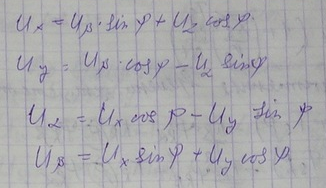 Ux = Uβ · sin φ + U2 cos φ.
Uy = Uβ · cos φ − U2 sin φ
U2 = Ux cos φ − Uy sin φ
Uβ = Ux sin φ + Uy cos φ.